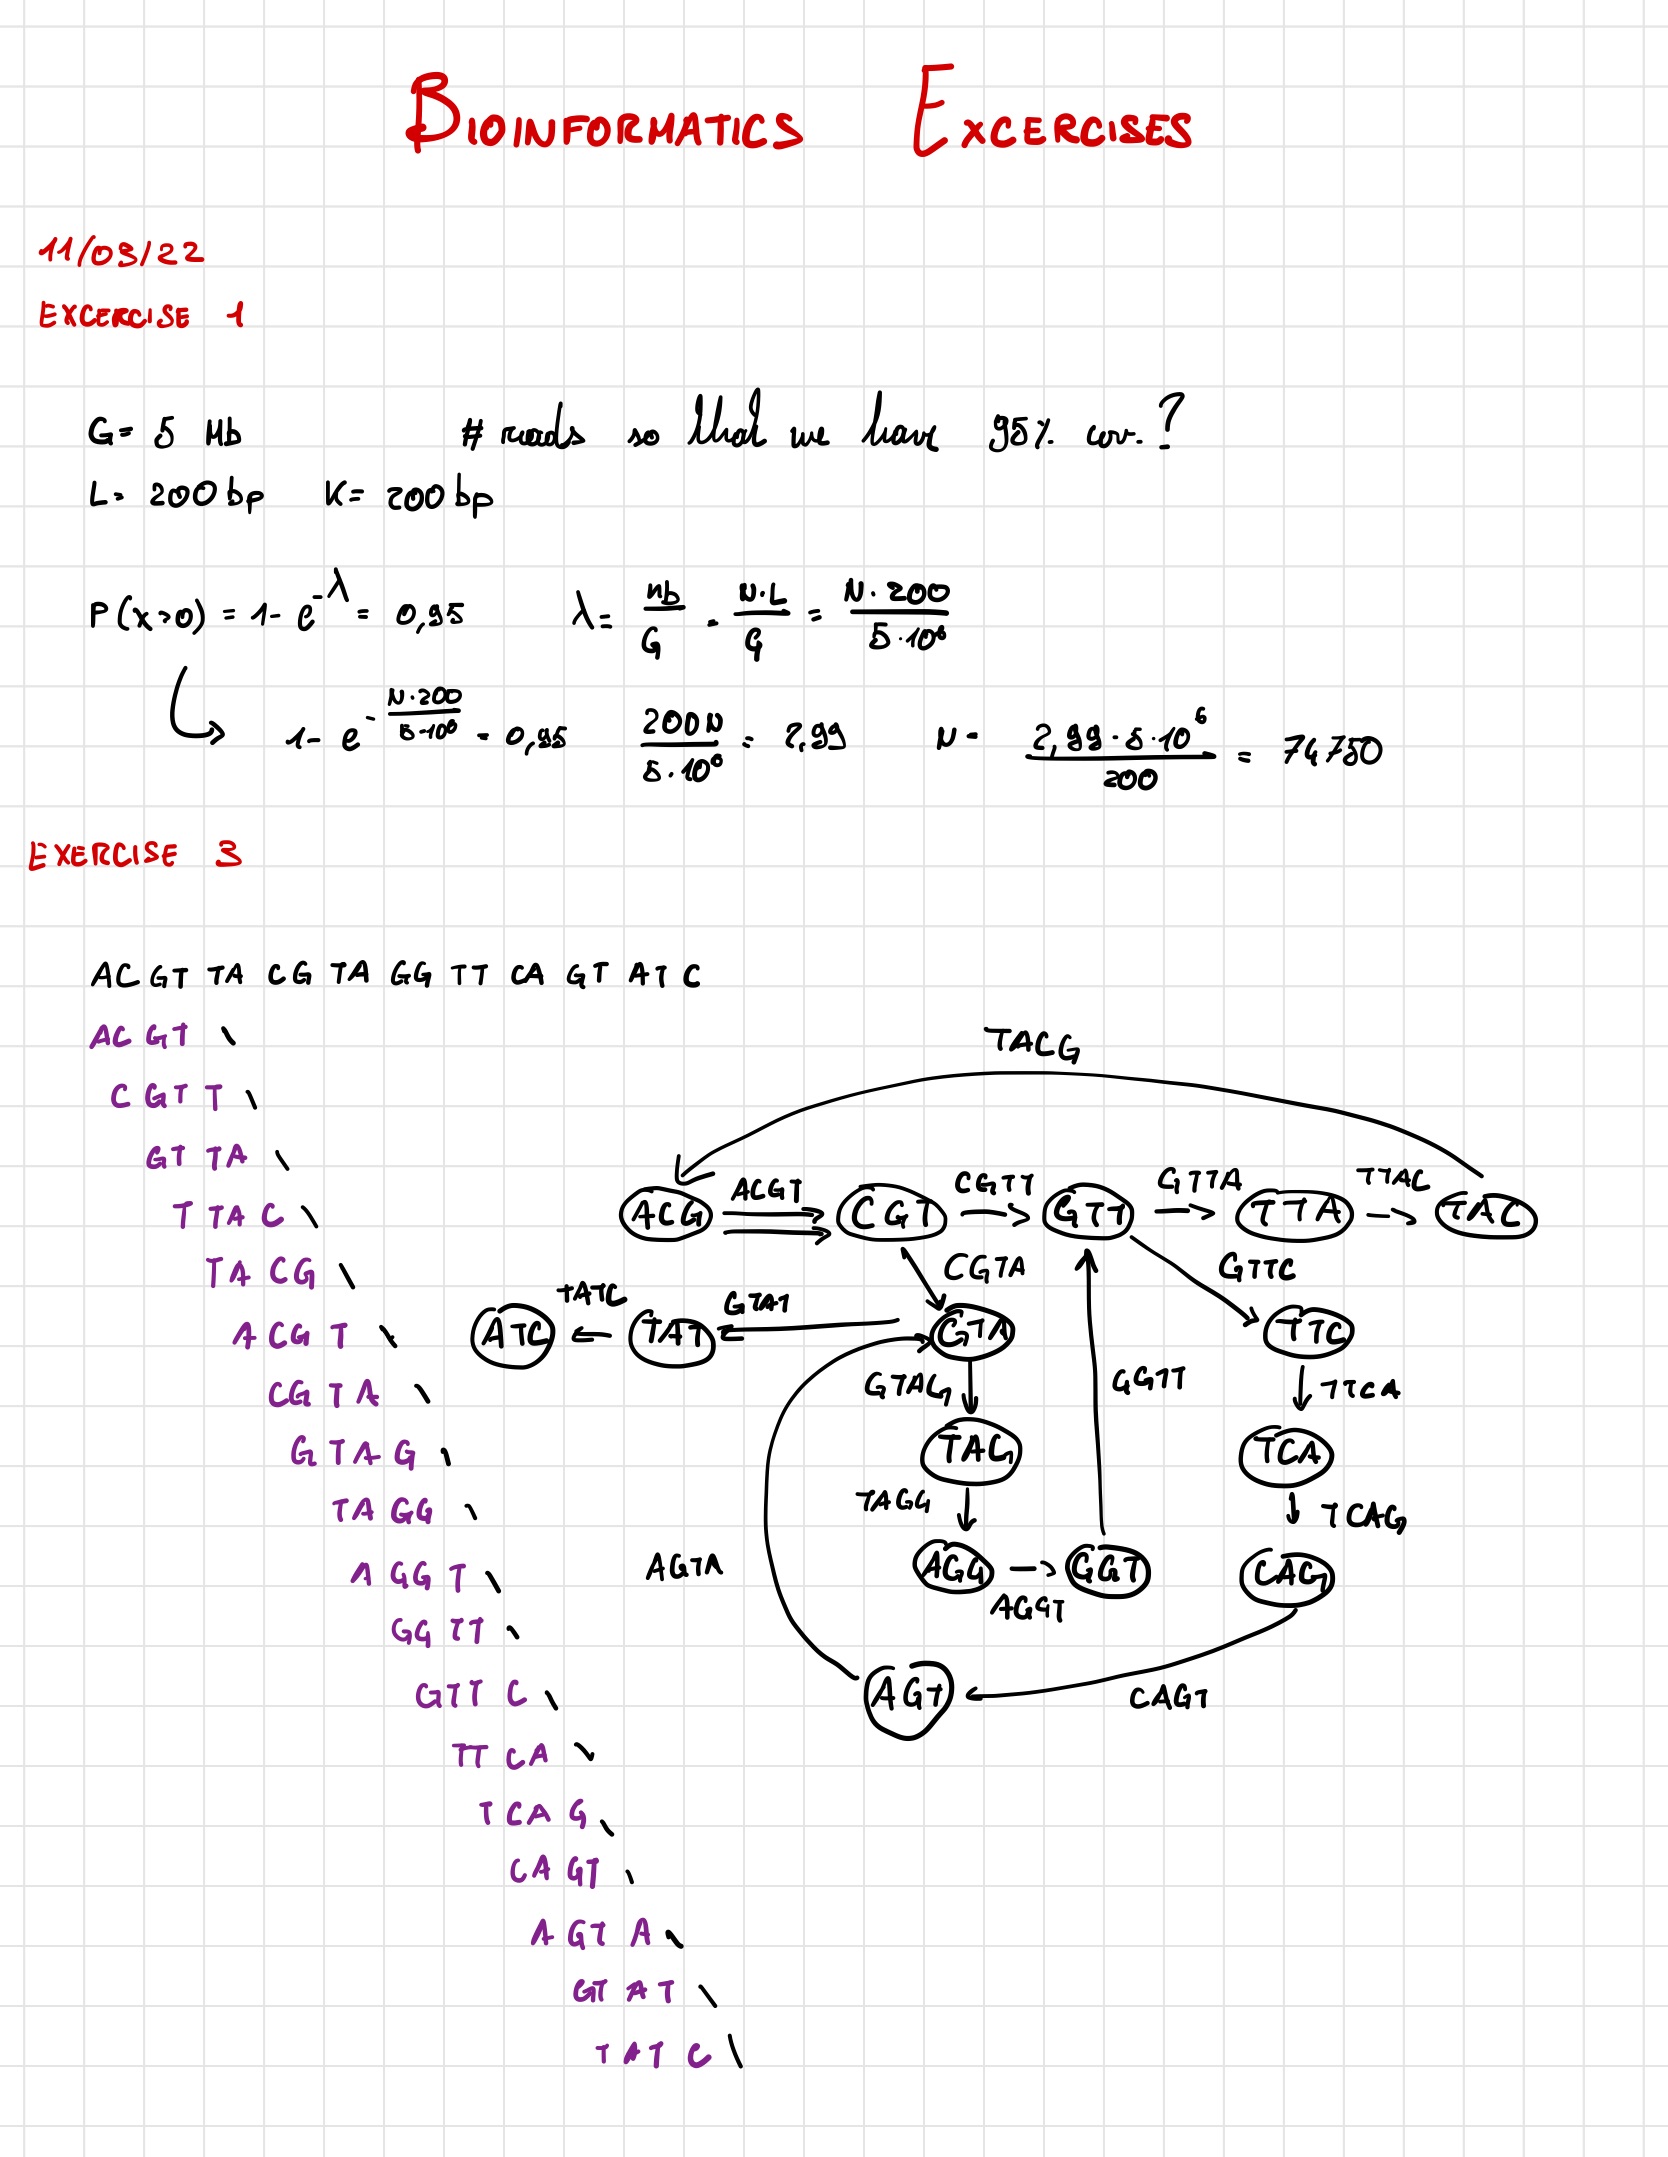 BIOINFORMATICS EXCERCISES
11/03/22
EXCERCISE 1
G= 5 Mb # reads so that we have 95% cov.?
L= 200bp K= 200bp
P(x>0) = 1- e^-λ = 0,95 λ= nb/G = N·L/G = N·200/5·10⁶
1- e^-N·200/5·10⁶ = 0,95 200N/5·10⁶ = 2,99 N= 2,99·5·10⁶/200 = 74750
EXERCISE 3
ACGTTACGTAGGTTCAGTATC
ACGT
CGTT
GTTA
TTAC
TACG
ACGT
CGTA
GTAG
TAGG
AGGT
GGTT
GTTC
TTCA
TCAG
CAGT
AGTA
GTAT
TATC
TACG
ACGT CGTT GTTA TTAC
ACG CGT GTT TTA TAC
CGTA GTTC
TATC GTAT
ATC TAT GTA TTC
GTAG GGTT TTCA
TAG TCA
TAGG TCAG
AGTA AGG GGT CAG
AGGT
AGT CAGT